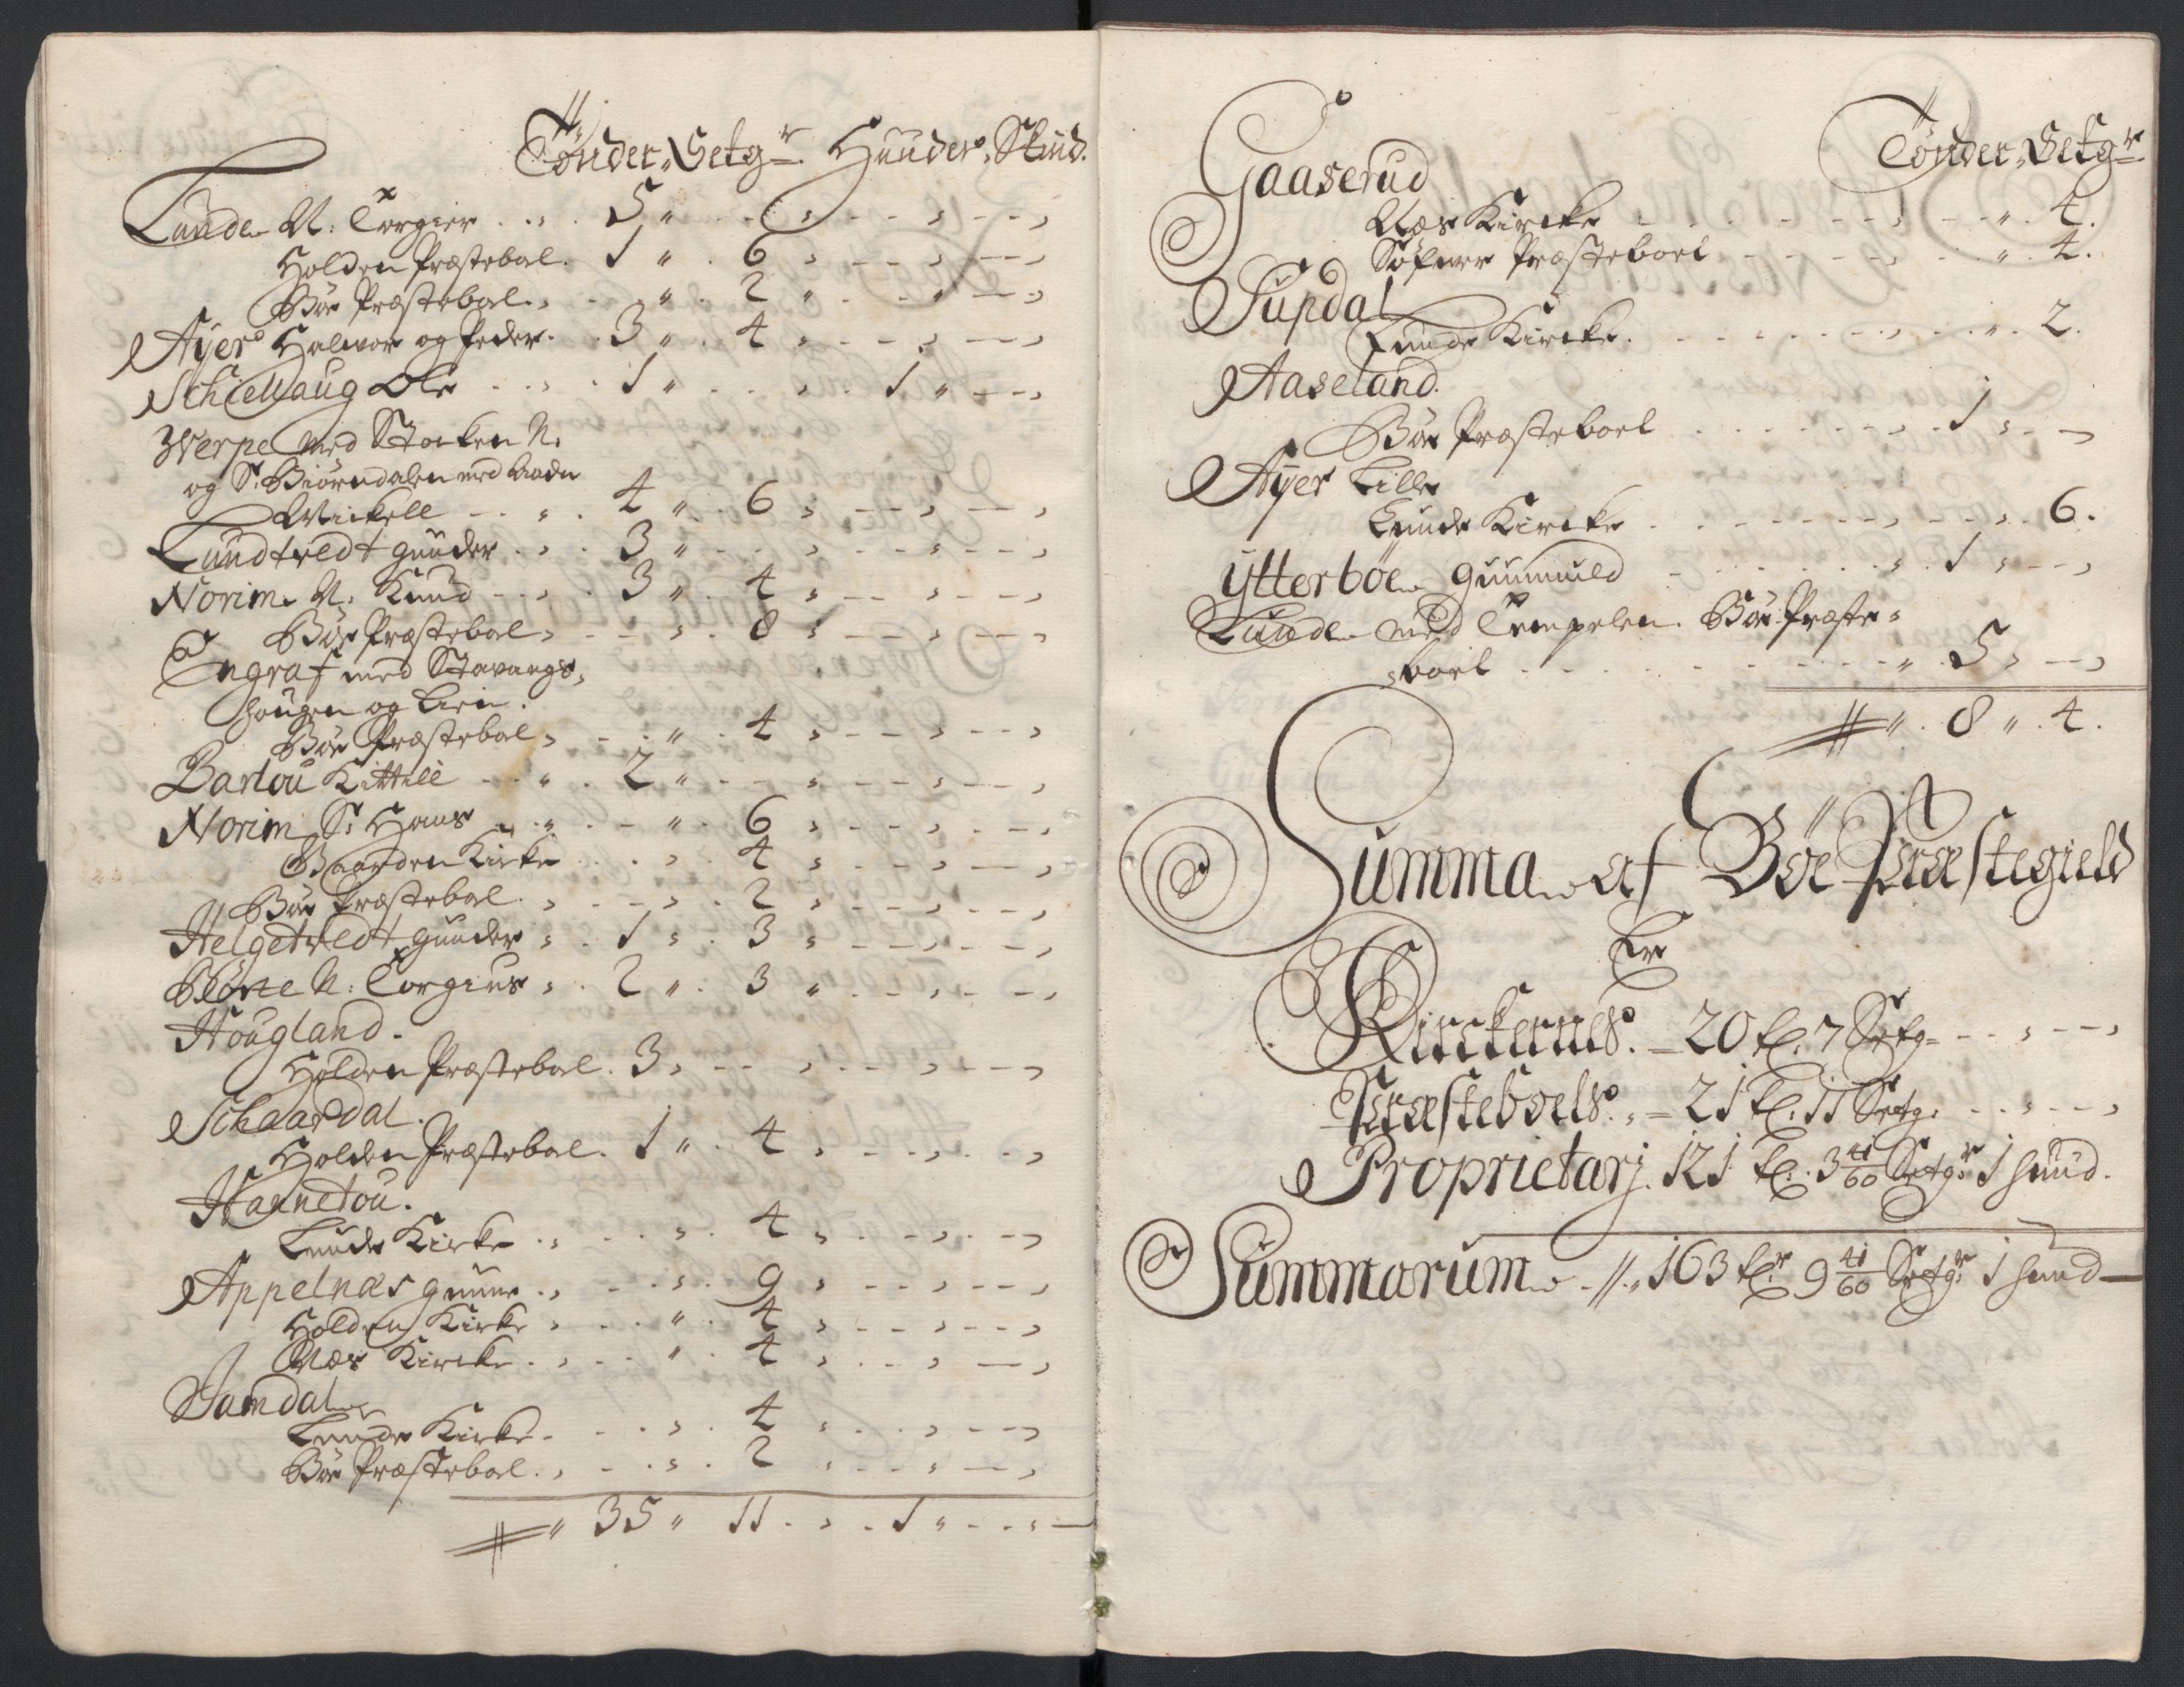 Tønder, Setgr. Huuder, Skind.
Lunde N: Torgier . . 5 "
Holden Præstebol. 1 " 6
Bøe Præstebol. " 2 "
Ayer Halvor og Peder. 3 " 4
Schiellaug Ole 1 " 1 "
Werpe med Stocken N:
og S: Biørndalen med
Mickell 4 " 6
Lundtvedt Gunder 3 "
Norim N: Knud 3 " 4
Bøe Præstebol 8
Engraf med Stavangs,
hougen og Lien.
Bøe Præstebol " 4
Barlou Kittill 2 "
Norim S: Hans " 6
Kirke 4
Bøe Præstebol. 2
Helgetvedt Gunder 1 3
N: Torgius 2 " 3 "
Hougland.
Holden Præstebol. 3
Schaardal.
Holden Præstebol. 1 " 4
Hannetou.
Lunde Kirke 4
Appelnæs Gunne 9
Holden Kirke " 4
Næs Kircke " 4
Jamdal
Lunde Kirke 4
Bøe Præstebol. 2
" 35 " 11 . 1 "
Tønder, Setgr.
Gaaserud
Næs Kircke " 4.
Præsteboel " 4.
Supdal
Lunde Kircke. " 2.
Aaseland.
Bøe Præsteboel 1
Ayer Lille
Lunde Kircke 6.
Ytterbøe Gunnuld 1
Lunde med Tempelen Bøe Præste-
boel " 5
" 8 " 4.
Summa af Bøe Præstegield
Er
Kirckernes. 20 tl. 7 Setg
Præsteboels. 21 tl. 11 Setg.
Proprietarj. 121 tl. 3 41/60 Setgr. 1 huud.
Summarum 163 tlr 9 41/60 Setgr 1 huud